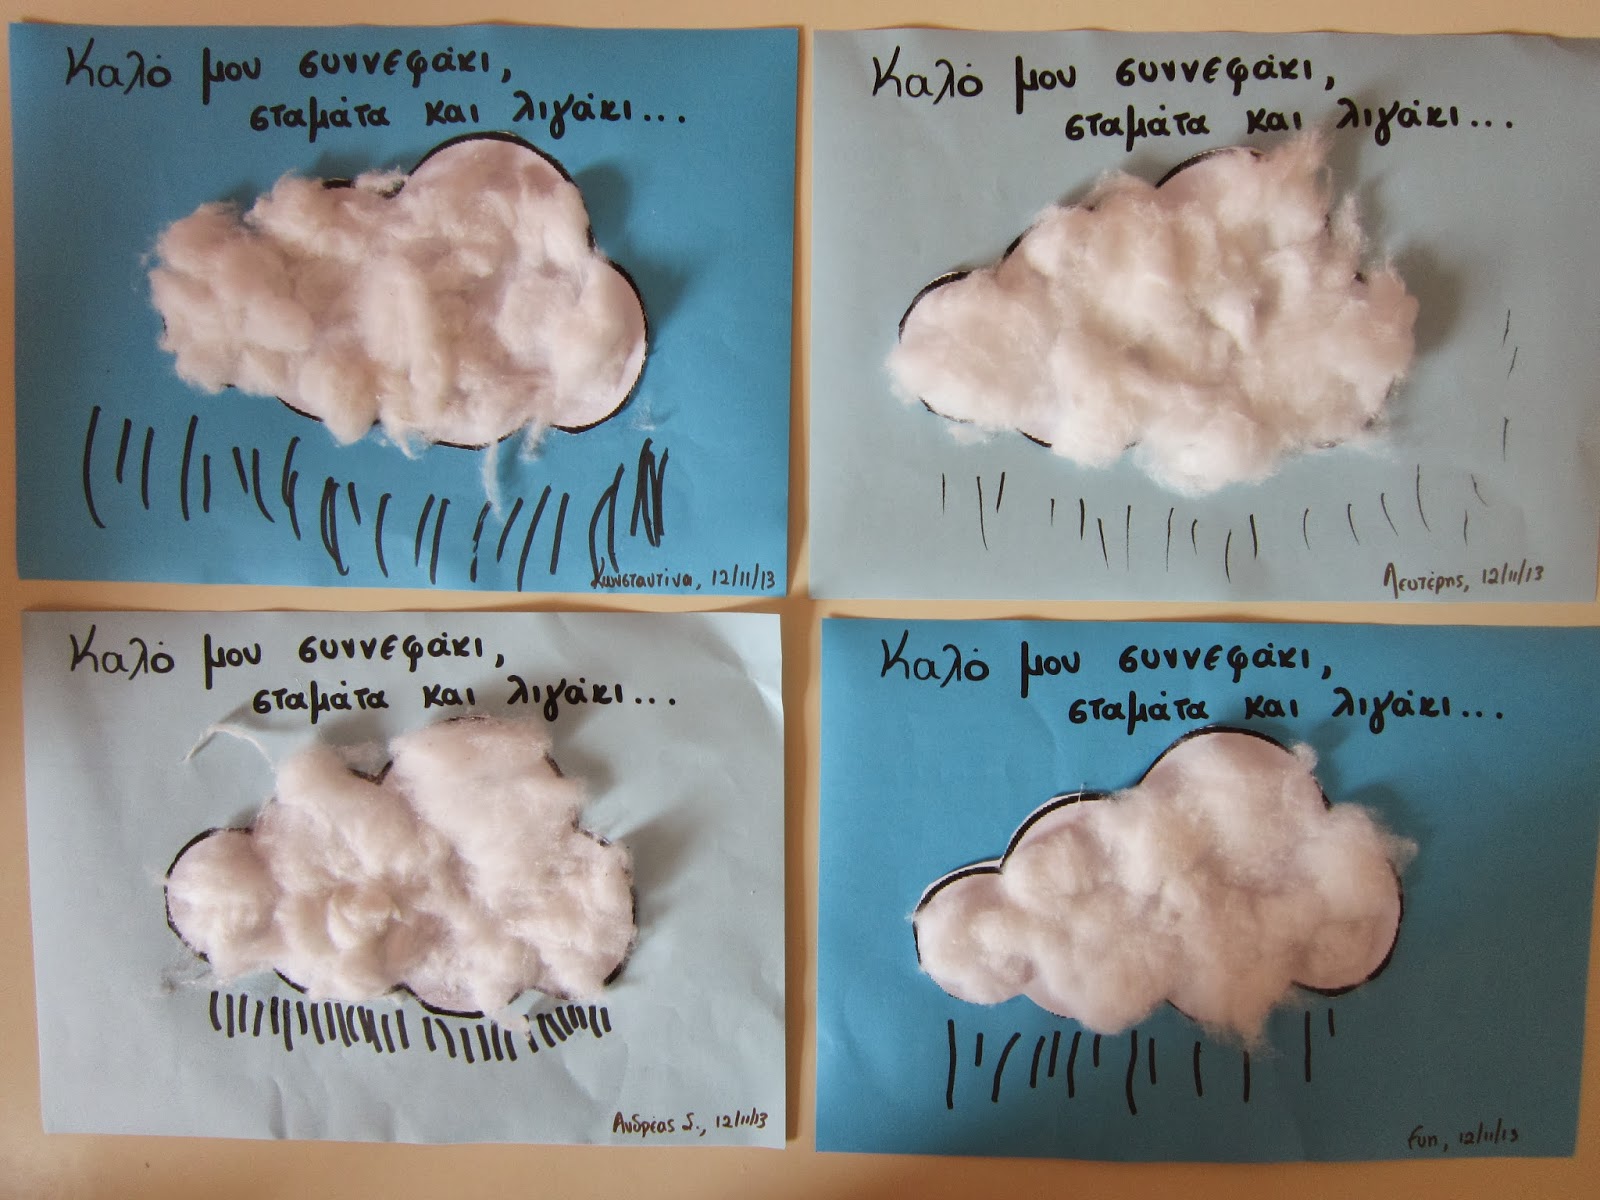 Καλό μου συννεφάκι,
σταμάτα και λιγάκι...
Κωνσταντίνα, 12/11/13
Καλό μου συννεφάκι,
σταμάτα και λιγάκι...
Λευτέρης, 12/11/13
Καλό μου συννεφάκι,
σταμάτα και λιγάκι...
Ανδρέας Σ., 12/11/13
Καλό μου συννεφάκι,
σταμάτα και λιγάκι...
12/11/13